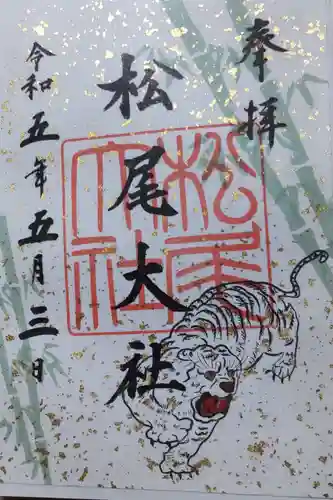 奉拝
松尾大社
令和五年五月三日
松尾
大社